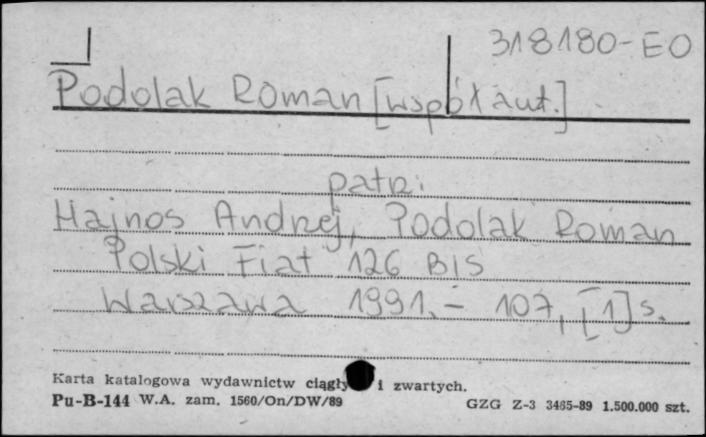 318180-EO
Podolak Roman [współaut.]
patrz:
Hajnos Andrzej, Podolak Roman
Polski Fiat 126 BIS
Warszawa 1991. - 107, [1] s.
Karta katalogowa wydawnictw ciągły i zwartych.
Pu-B-144 W.A. zam. 1560/On/DW/89
GZG Z-3 3465-89 1.500.000 szt.